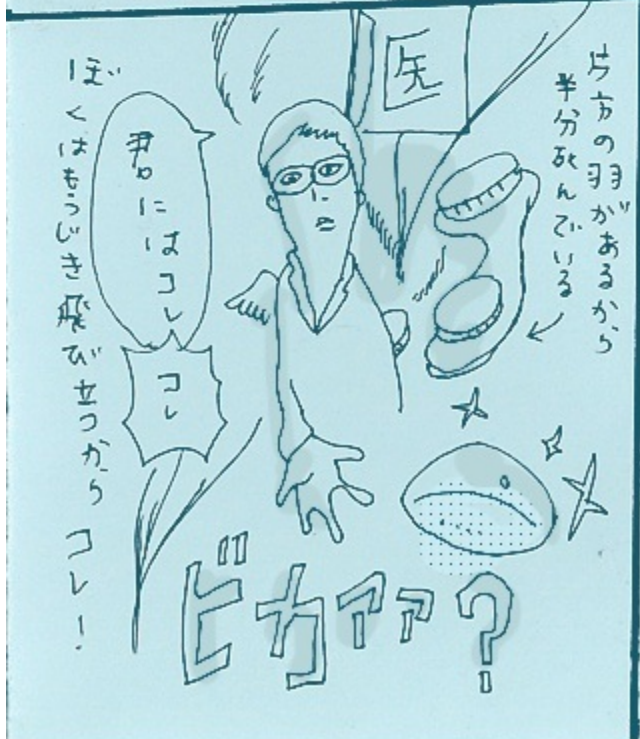 片方の羽があるから
半分死んでいる
医
君にはコレ
コレ
ぼくはもうじき飛び立つから コレ！
ピカァァ？